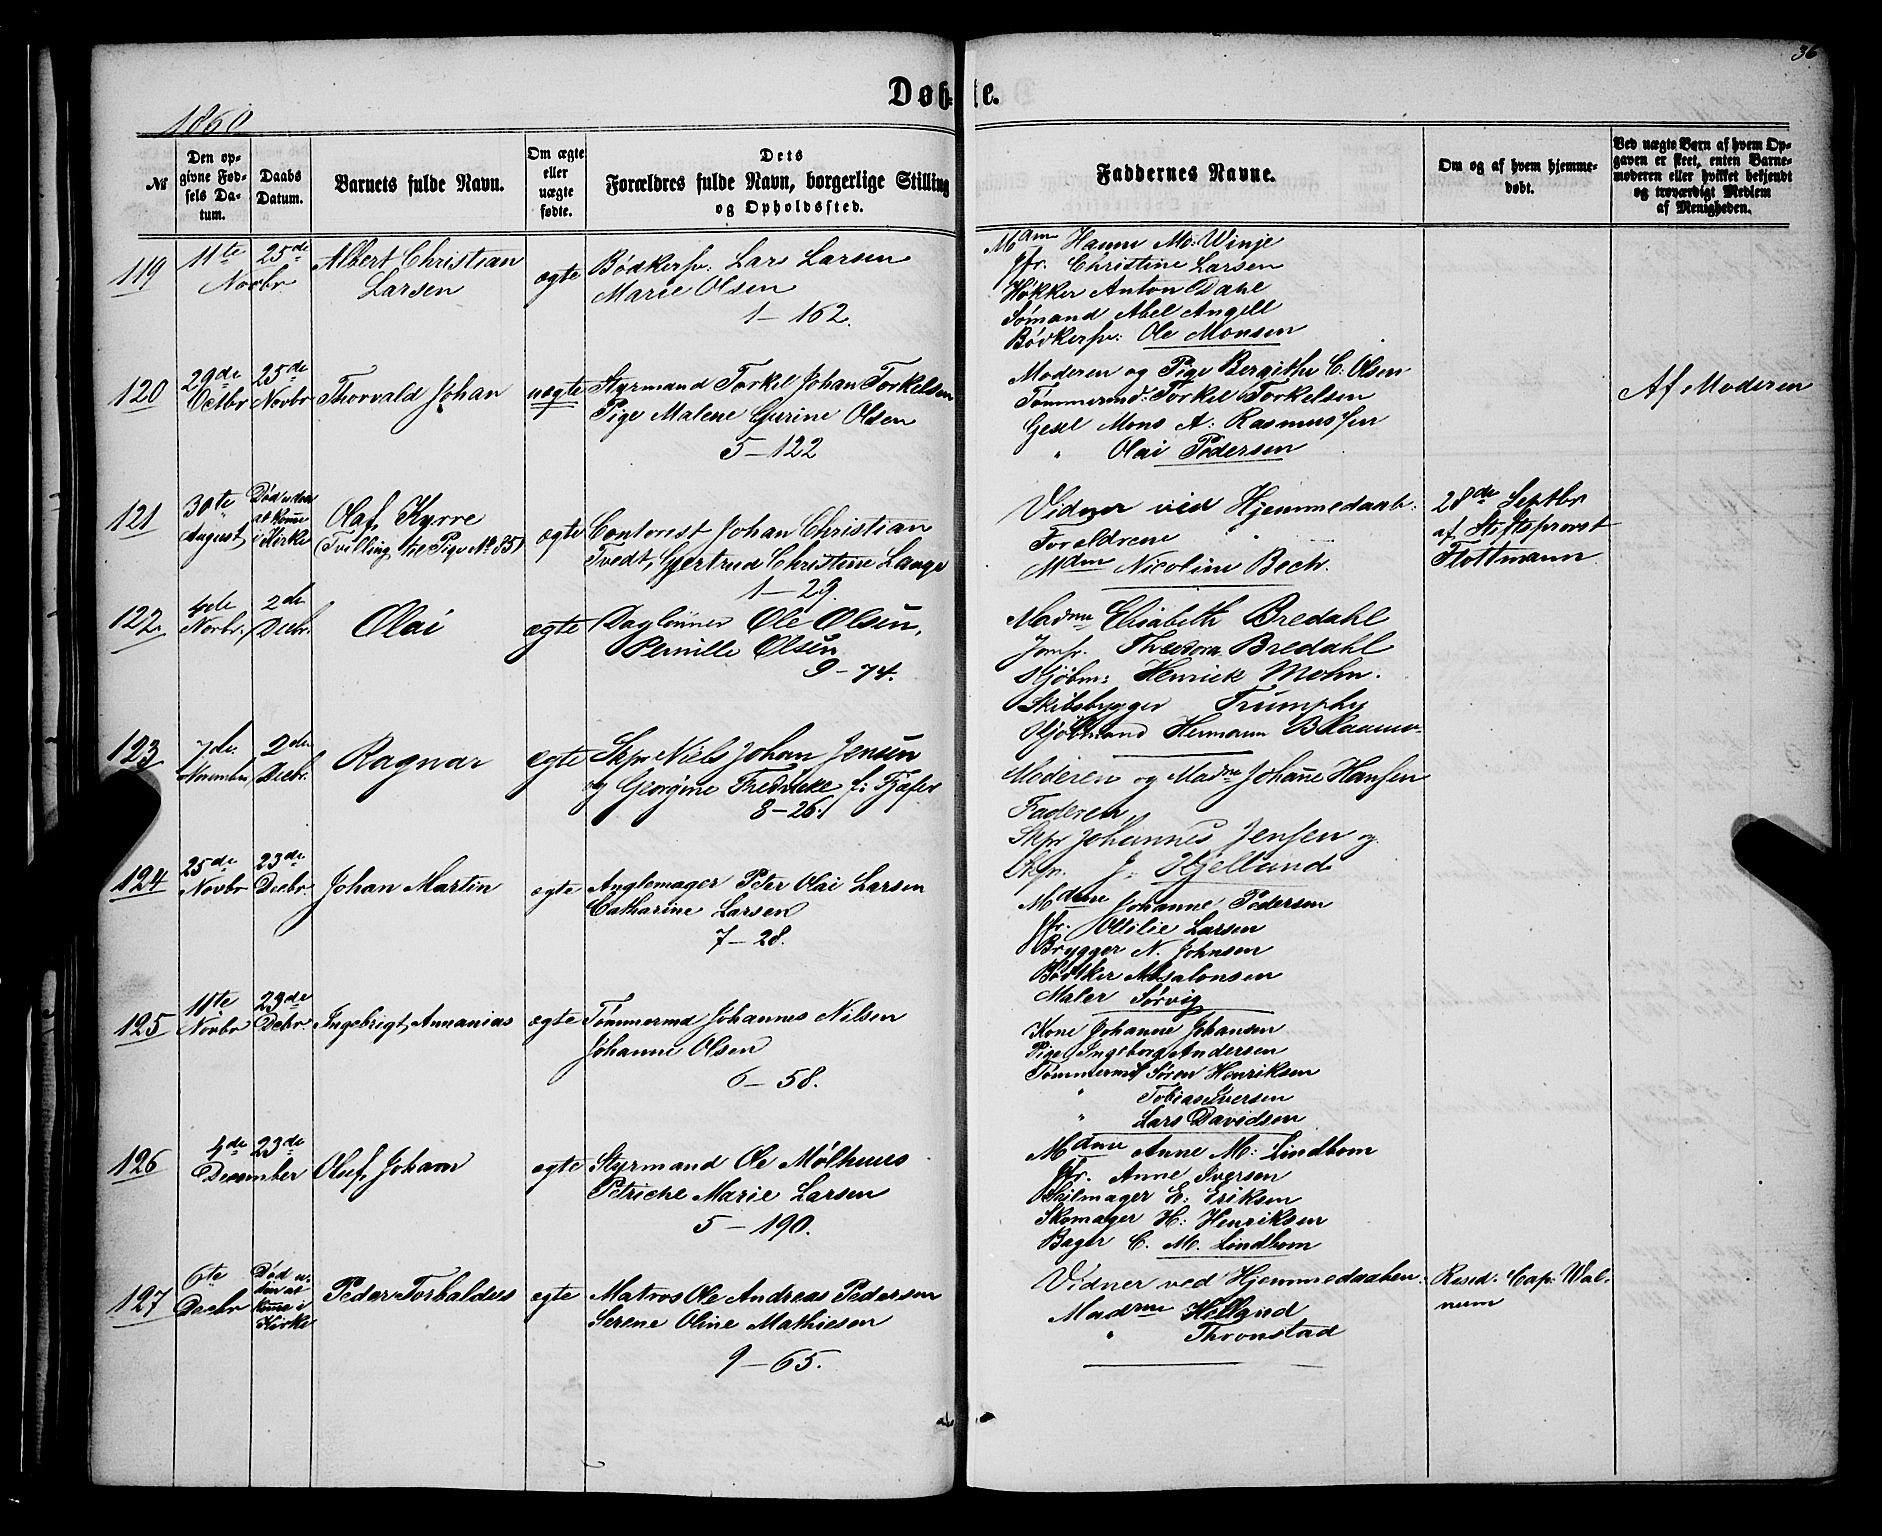 36
Døbte.
1860
№
Den opgivne Fødsels Datum.
Daabs Datum.
Barnets fulde Navn.
Om ægte eller uægte fødte.
Dets Forældres fulde Navn, borgerlige Stilling og Opholdssted.
Faddernes Navne.
Om og af hvem hjemmedøbt.
Ved uægte Barn af hvem Opgaven er skeet, enten Barnemoderen eller hvilket bekjendt og troværdigt Medlem af Menigheden.
119
11te 25de
Novbr
Albert Christian
Larsen
ægte
Bødkersv: Lars Larsen
Marie Olsen
1 – 162.
Mdme Hanna M: Winje
Jfr. Christine Larsen
Høkker Anton Dahl
Sømand Abel Angell
Bødkersv: Ole Monsen
120
29de Octbr
25de Novbr
Thorvald Johan
uægte
Styrmand Torkel Johan Torkelsen
Pige Malene Gurine Olsen
5 – 122
Moderen og Pige Bergithe C. Olsen
Tømmermd: Torkel Torkelsen
Gesel Mons A: Rasmussen
" Olai Pedersen
Af Moderen
121
30te August
Død uden
at komme
i Kirke
Olaf Kyrre
(Tvilling, see Pige No 85)
ægte
Contorist Johan Christian
Tvedt, Gjertrud Christine Lange
1 – 29.
Vidner ved Hjemmedaab:
Forældrene
Mdm Nicoline Bech.
28de Septbr
af Stiftsprovst
Flottmann
122
4de Novbr.
2den Decbr.
Olai
ægte
Daglønner Ole Olsen,
Pernille Olsen
9 – 74.
Madme Elisabeth Bredahl
Jomfr. Theodora Bredahl
Kjøbm: Henrick Mohn.
Skibsbygger Trumphy
Kjøbmand Hermann
123
7de Novemb
2den Decbr.
Ragnar
ægte
Skpr Niels Johan Jensen
og Georgine Fredrikke f:
8 – 26.
Moderen og Madme Johanne Hansen
Faderen
Skpr Johannes Jensen og
Skpr. J. Kjelland
124
25de Novbr
23de Decbr
Johan Martin
ægte
Anglemager Peter Olai Larsen
Catharine Larsen
7 – 28.
Mdme Johanne Pedersen
Jfr. Otilie Larsen
Brygger N. Johnsen
Bødker Absalonsen
Maler Sørvig
125
11te Novbr
23de Decbr
Ingebrigt Annanias
ægte
Tømmermd Johannes Nilsen
Johanne Olsen
6 – 58.
Kone Johanne Johansen
Pige Ingeborg Andersen
Tømmermd Søren Henriksen
" Tobias Iversen
" Lars Davidsen
126
4de 23de
December
Oluf Johan
ægte
Styrmand Ole Mølhuus
Petriche Marie Larsen
5 – 190.
Mdme Anne M: Lindbom
Jfr. Anne Iversen
Seilmager E: Eriksen
Skomager H: Henriksen
Bager C. M. Lindbom
127
6te Decbr
Død uden
at
komme i
Kirke
Peder Torbaldus
ægte
Matros Ole Andreas Pedersen
Serene Oline Mathiesen
9 – 65.
Vidner ved Hjemmedaaben:
Madme Helland
" Thronstad
Resid: Cap: Walnum